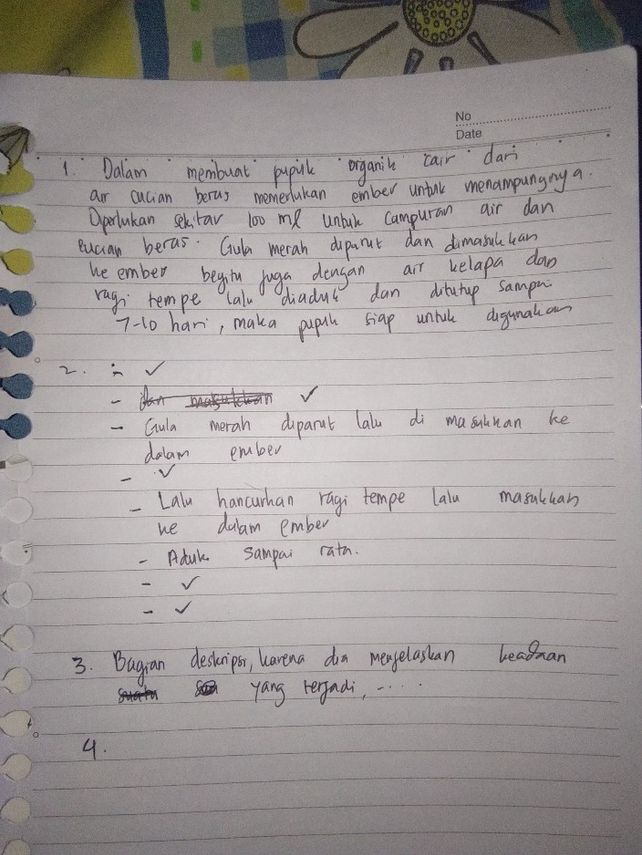 No
Date
1. Dalam membuat pupuk organik cair dari
air cucian beras memerlukan ember untuk menampungnya.
Diperlukan sekitar 100 ml untuk campuran air dan
cucian beras. Gula merah diparut dan dimasukkan
ke ember begitu juga dengan air kelapa dan
ragi tempe lalu diaduk dan ditutup sampai
7-10 hari, maka pupuk siap untuk digunakan
2. - ✓
- dan masukkan ✓
- Gula merah diparut lalu di masukkan ke
dalam ember
- ✓
- Lalu hancurkan ragi tempe lalu masukkan
ke dalam ember
- Aduk sampai rata.
- ✓
- ✓
3. Bagian deskripsi, karena dia menjelaskan keadaan
suatu yang terjadi, -....
4.